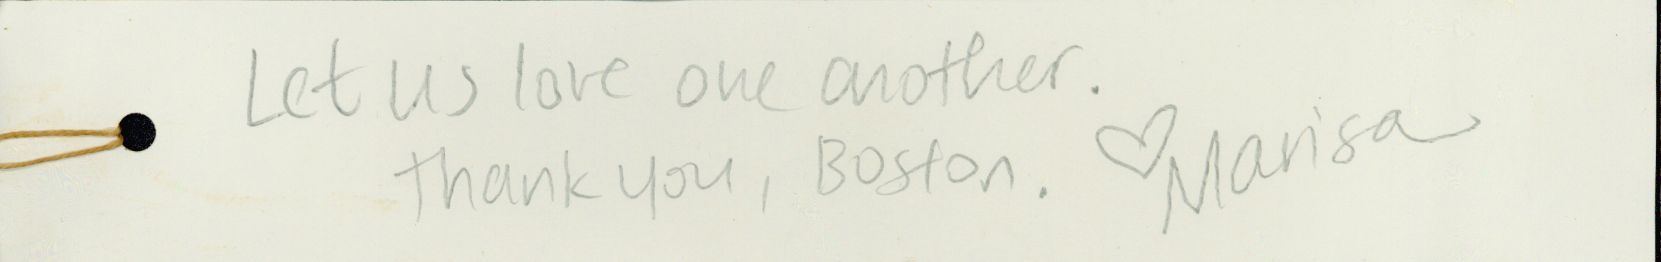 Let us love one another.
Thank you, Boston. ♡ Marisa